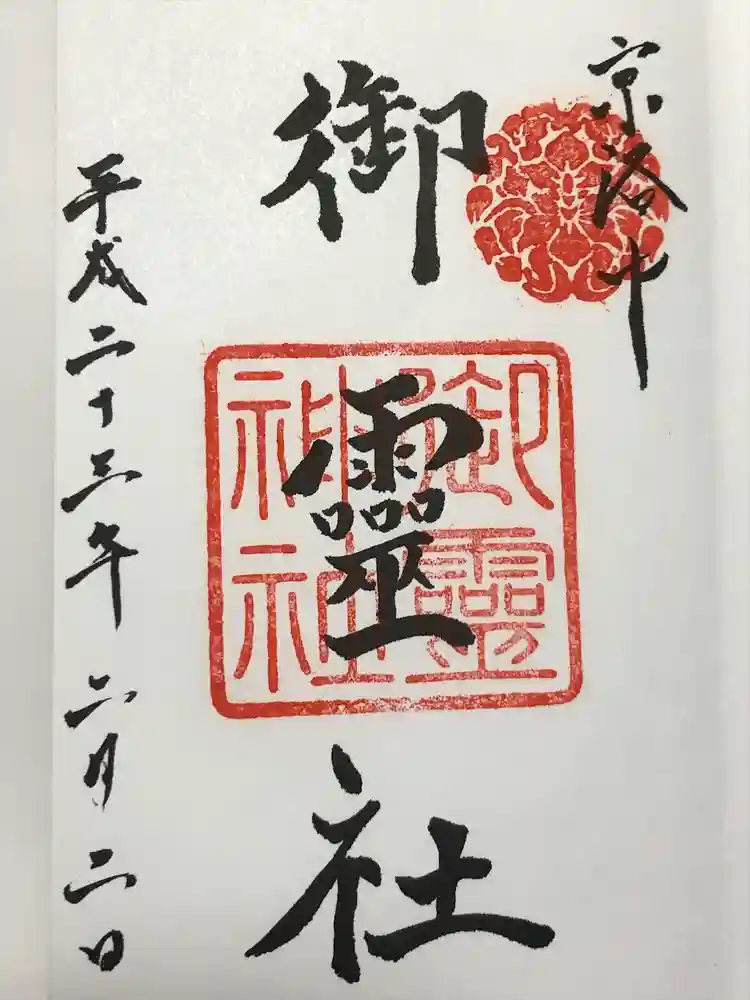 京洛中
御靈社
御靈
神社
平成二十三年 二月二日